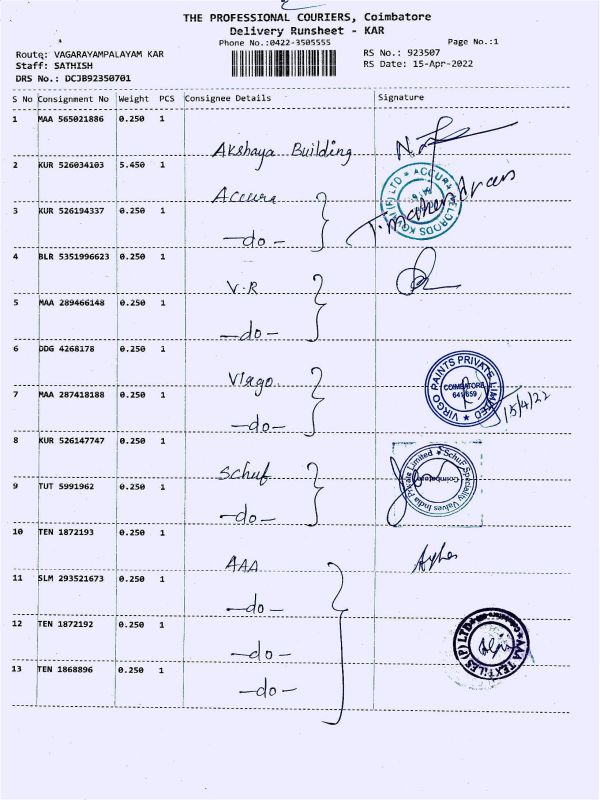 THE PROFESSIONAL COURIERS, Coimbatore
Delivery Runsheet - KAR
Phone No.:0422-3505555
Page No.:1
Route: VAGARAYAMPALAYAM KAR
Staff: SATHISH
DRS No.: DCJB92350701
RS No.: 923507
RS Date: 15-Apr-2022
S No Consignment No Weight PCS Consignee Details Signature
1 MAA 565021886 0.250 1
Akshaya Building
2 KUR 526034103 5.450 1
Accura
3 KUR 526194337 0.250 1
-do-
4 BLR 5351996623 0.250 1
V.R
5 MAA 289466148 0.250 1
-do-
6 DDG 4268178 0.250 1
Virgo
VIRGO PAINTS PRIVATE LIMITED
COIMBATORE
641659
15/4/22
7 MAA 287418188 0.250 1
-do-
8 KUR 526147747 0.250 1
Schuf
Schuf Speciality Valves India Private Limited
Coimbatore
9 TUT 5991962 0.250 1
-do-
10 TEN 1872193 0.250 1
AAA
11 SLM 293521673 0.250 1
-do-
12 TEN 1872192 0.250 1
-do-
AAA TEXTILES (P) LTD
13 TEN 1868896 0.250 1
-do-